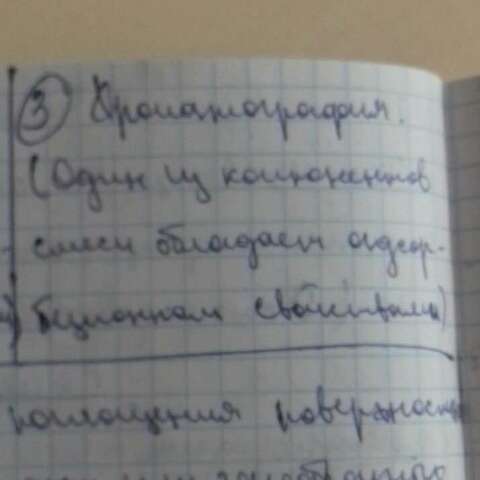 ③ Хроматография.
(Один из компонентов
смеси обладает адсор-
бционном свойствами)
поглощения поверхность